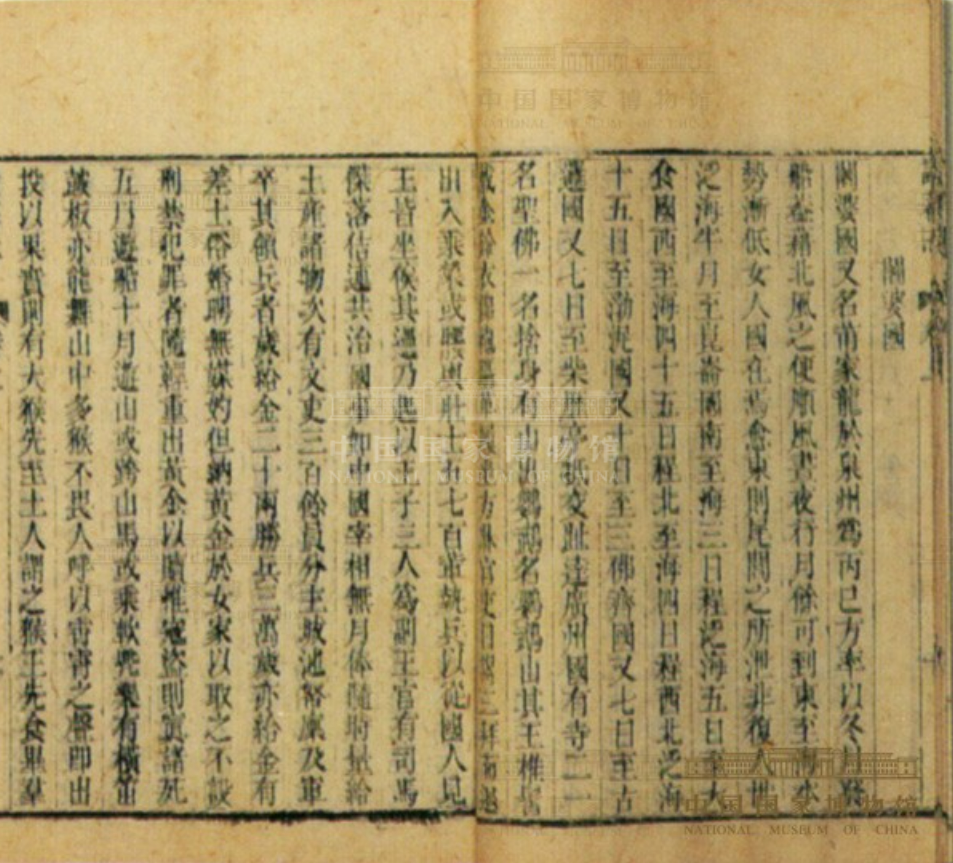 闍婆國
闍婆國又名莆家龍於泉州為丙巳方率以冬月發
船盖藉北風之便順風晝夜行月餘可到東至海水
勢漸低女人國在焉愈東則尾閭之所泄非復人世
泛海半月至崑崙國南至海三日程泛海五日至大
食國西至海四十五日程北至海四日程西北泛海
十五日至渤泥國又十日至三佛齊國又七日至古
邏國又七日至柴歷亭抵交趾達廣州國有寺二一
名聖佛一名捨身有山出鸚鵡名鸚鵡山其王椎髻
戴金鈴衣錦袍躡革履坐方牀官吏日謁三拜而退
出入乘象或腰輿壯士五七百輩執兵以從國人見
王皆坐俟其過乃起以王子三人為副王官有司馬
傑落佶連共治國事如中國宰相無月俸隨時量給
土產諸物次有文吏三百餘員分主城池帑廩及軍
卒其領兵者歲給金二十兩勝兵三萬歲亦給金有
差土俗婚聘無媒妁但納黃金於女家以取之不設
刑禁犯罪者隨輕重出黃金以贖惟寇盜則寘諸死
五月遊船十月遊山或跨山馬或乘軟兜樂有橫笛
鼓板亦能舞山中多猴不畏人呼以霄霄之聲即出
投以果實則有大猴先至土人謂之猴王先食畢羣
中国国家博物馆
NATIONAL MUSEUM OF CHINA
中国国家博物馆
NATIONAL MUSEUM OF CHINA
中国国家博物馆
NATIONAL MUSEUM OF CHINA